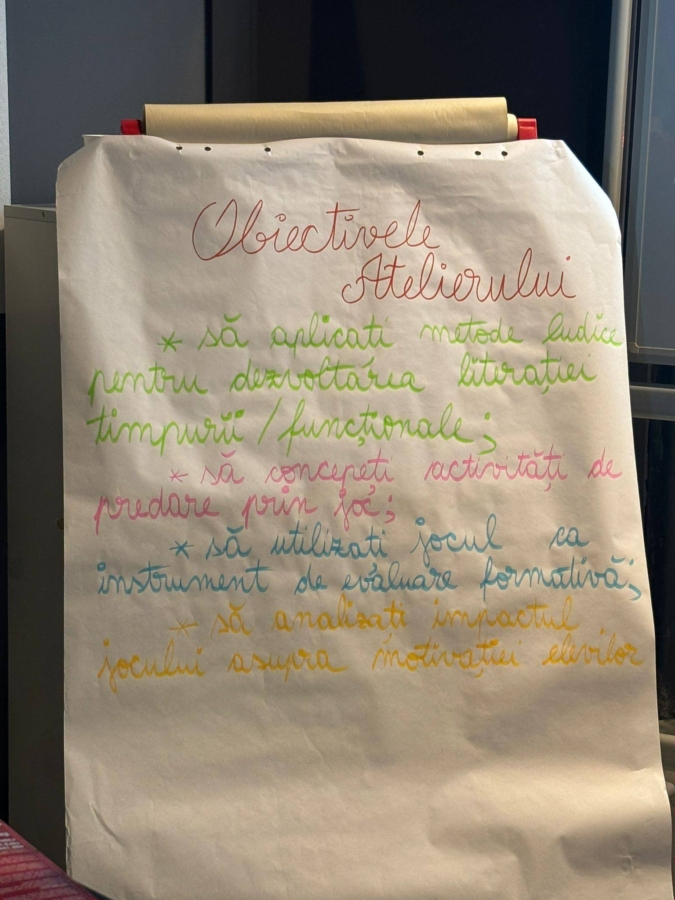 Obiectivele
Atelierului
* să aplicati metode ludice
pentru dezvoltarea literației
timpurii / funcționale;
* să concepeți activități de
predare prin joc;
* să utilizati jocul ca
instrument de evaluare formativă;
* să analizati impactul
jocului asupra motivației elevilor